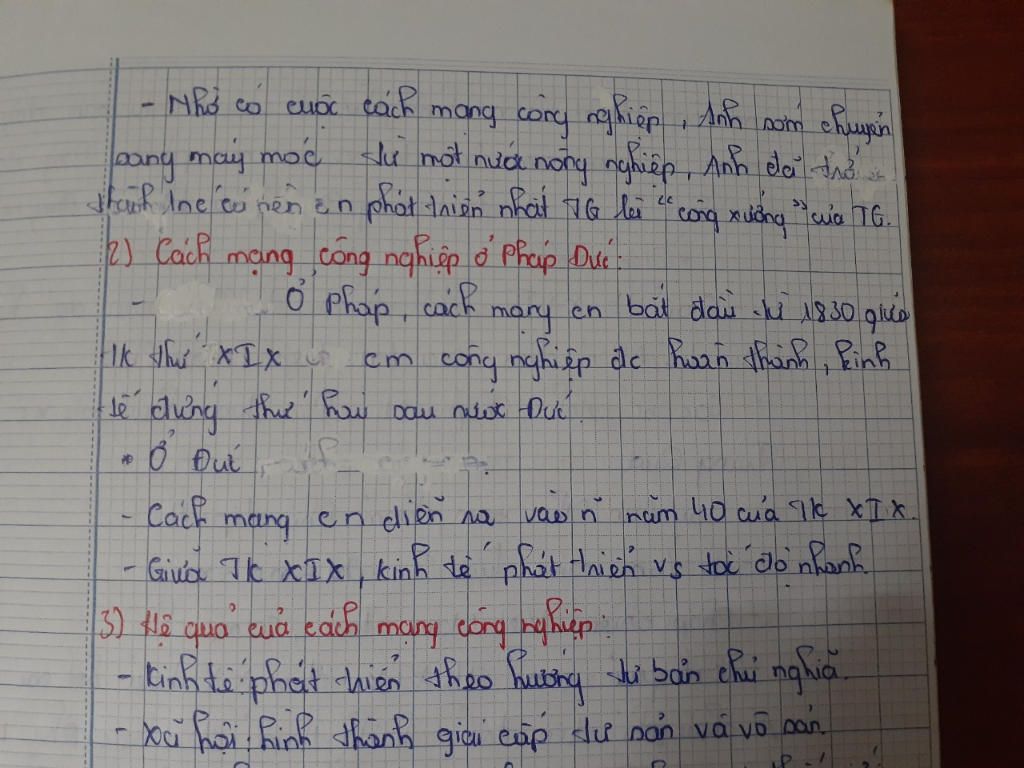 - Nhờ có cuộc cách mạng công nghiệp, Anh sớm chuyển
sang máy móc từ một nước nông nghiệp, Anh đã trở
thành 1nc có nền cn phát triển nhất TG là "công xưởng" của TG.
2) Cách mạng công nghiệp ở Pháp Đức:
- Ở Pháp, cách mạng cn bắt đầu từ 1830 giữa
TK thứ XIX cm công nghiệp đc hoàn thành, kinh
tế đứng thứ hai sau nước Đức.
• Ở Đức
- Cách mạng cn diễn ra vào n~ năm 40 của TK XIX.
- Giữa TK XIX, kinh tế phát triển vs tốc độ nhanh.
3) Hệ quả của cách mạng công nghiệp:
- Kinh tế: phát triển theo hướng tư bản chủ nghĩa.
- Xã hội: hình thành giai cấp tư sản và vô sản.